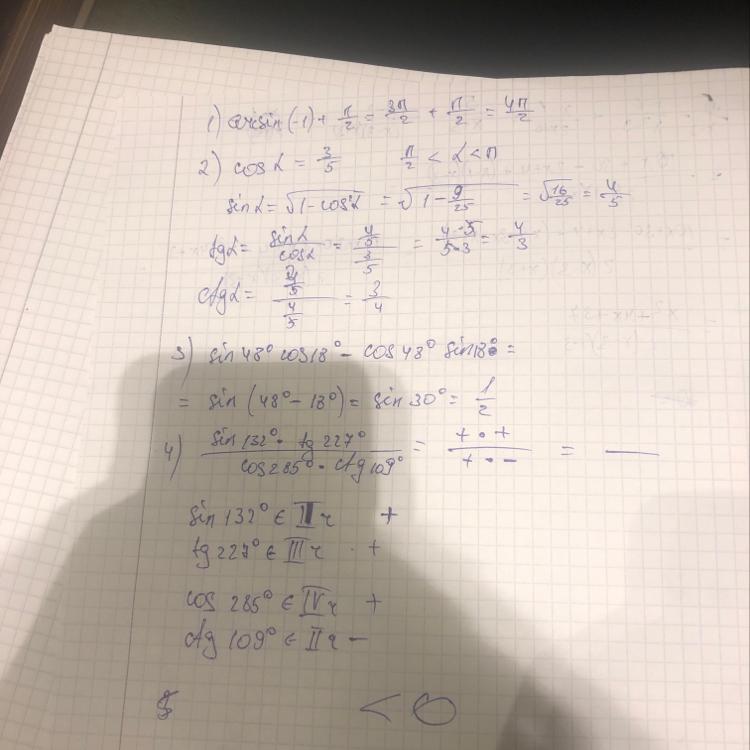 1) arcsin(-1) + π/2 = 3π/2 + π/2 = 4π/2
2) cos α = 3/5   π/2 < α < π
sin α = √(1 - cos²α) = √(1 - 9/25) = √(16/25) = 4/5
tg α = sin α / cos α = (4/5) / (3/5) = (4·5)/(5·3) = 4/3
ctg α = (3/5) / (4/5) = 3/4
3) sin 48° cos 18° - cos 48° sin 18° =
= sin (48° - 18°) = sin 30° = 1/2
4) (sin 132° · tg 227°) / (cos 285° · ctg 109°) = (+ · +) / (+ · -) = —
sin 132° ∈ II ч +
tg 227° ∈ III ч +
cos 285° ∈ IV ч +
ctg 109° ∈ II ч -
< 0